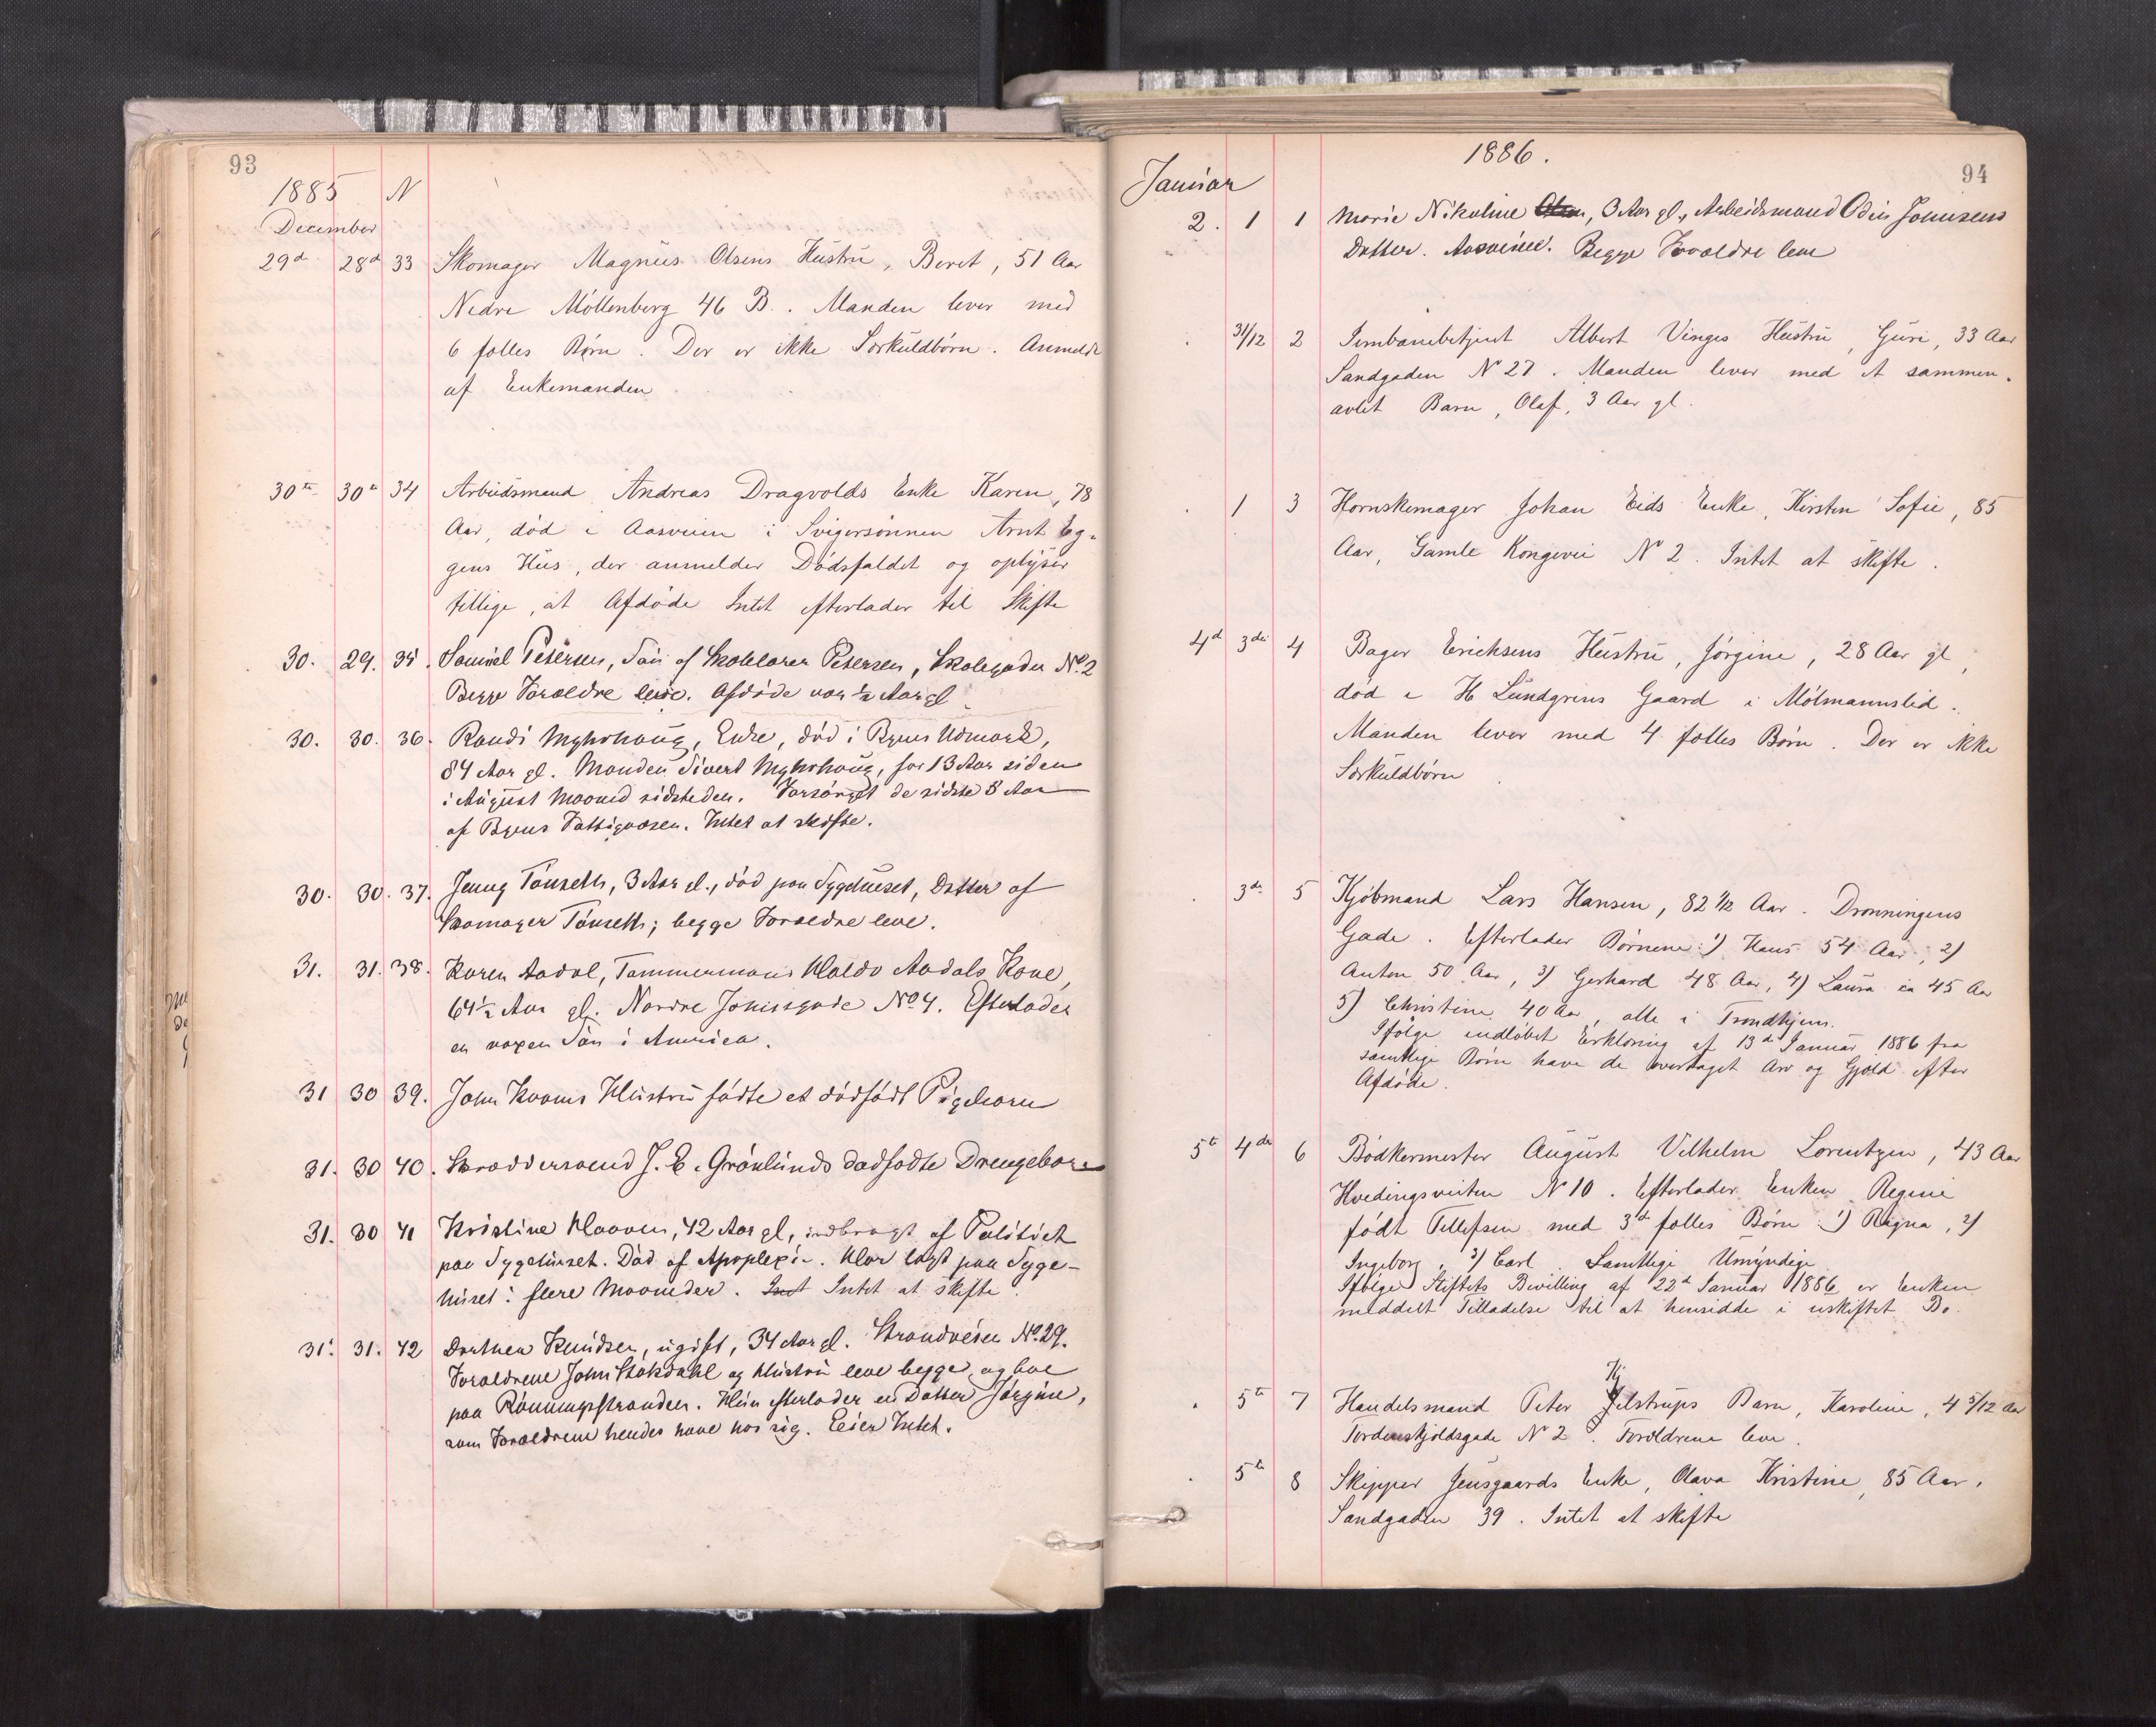 93
1885 N
December
29d 28d 33 Skomager Magnus Olsens Hustru, Beret, 51 Aar
Nedre Möllenberg 46 B. Manden lever med
6 fælles Börn. Der er ikke Særkuldbörn. Anmeldt
af Enkemanden
30te 30te 34 Arbeidsmand Andreas Dragvolds Enke Karen, 78
Aar, död i Aasveien i Svigersönnen Arnt Eg-
gens Hus, der anmelder Dödsfaldet og oplyser
tillige, at Afdöde Intet efterlader til Skifte
30. 29. 35. Samuel Petersen, Sön af Skolelærer Petersen, Skolegaden No 2
Begge Forældre leve. Afdöde var ½ Aar gl
30. 30. 36. Randi Myhrhaug, Enke, död i Byens Udmark,
84 Aar gl. Manden Sivert Myhrhaug, for 13 Aar siden
i August Maaned sidstleden. Forsörget de sidste 8 Aar
af Byens Fattigvæsen. Intet at skifte.
30. 30. 37. Jenny Tönseth, 3 Aar gl., död paa Sygehuset, Datter af
Skomager Tönseth; begge Forældre leve.
31. 31. 38. Karen Aadal, Tømmermand Haldo Aadals Kone,
64½ Aar gl. Nordre Johnsgade No 4. Efterlader
en voxen Sön i America.
31 30 39. John Kvams Hustru födte et dödfödt Pigebarn
31. 30 40. Skræddersvend J. E. Grönlunds dødfødte Drengebarn
31. 30 41 Kristine Haaven, 42 Aar gl, indbragt af Politiet
paa Sygehuset. Död af Apoplexie. Har lagt paa Syge-
huset i flere Maaneder. Intet at skifte.
31. 31. 42 Dorthea Knudsen, ugift, 34 Aar gl. Strandveien No. 29.
Forældrene John Stokdahl og Hustru leve begge og boe
paa Rönningstranden. Hun efterlader en Datter Jörgine,
som Forældrene hendes have hos sig. Eeier Intet.
1886. 94
Januar
2. 1 1 Marie Nikoline 3 Aar gl., Arbeidsmand Odin Johnsens
Datter. Aasveien. Begge Forældre leve
31/12 2 Jernbanebetjent Albert Vinges Hustru, Guri, 33 Aar
Sandgaden N 27. Manden lever med et sammen-
avlet Barn, Olaf, 3 Aar gl.
1 3 Hornskemager Johan Eids Enke, Kirsten Sofie, 85
Aar, Gamle Kongevei N 2. Intet at skifte.
4d 3die 4 Bager Erichsens Hustru, Jörgine, 28 Aar gl,
död i H Lundgrens Gaard i Mölmannslid.
Manden lever med 4 fælles Börn. Der er ikke
Særkuldbörn
3die 5 Kjöbmand Lars Hansen, 82 1/12 Aar. Dronningens
Gade. Efterlader Börnene: 1) Hans 54 Aar, 2)
Anton 50 Aar, 3) Gerhard 48 Aar, 4) Laura ca 45 Aar
5) Christine 40 Aar, alle i Trondhjem.
Ifölge indlöbet Erklæring af 13de Januar 1886 fra
samtlige Börn have de overtaget Arv og Gjæld efter
Afdöde.
5te 4de 6 Bödkermester August Vilhelm Lorentzen, 43 Aar
Hvedingsveiten N 10. Efterlader Enken Regine
födt Tellefsen med 3de fælles Börn 1) Ragna, 2)
Ingeborg, 3) Carl. Samtlige Umyndige.
Ifölge Stiftets Bevilling af 22d Januar 1886 er Enken
meddelt Tilladelse til at hensidde i uskiftet Bo.
5te 7 Handelsmand Peter Kjelstrups Barn, Karoline, 4 5/12 Aar
Tordenskjoldsgade N 2. Forældrene leve.
5te 8 Skipper Jensgaards Enke, Olava Kristine, 85 Aar.
Sandgaden 39. Intet at skifte